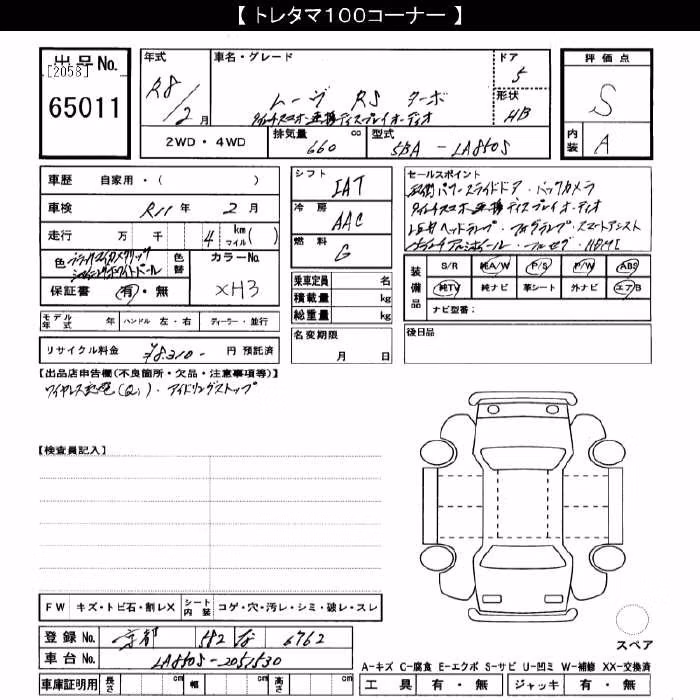 【 トレタマ100コーナー 】
出品No.
[2058]
65011
年式
R8/2月
車名・グレード
ムーヴ RS ターボ
ドア
5
形状
HB
評価点
S
内装
A
2WD・4WD
排気量
660
cc
型式
5BA-LA850S
車歴 自家用・( )
車検 R11年 2月
走行 万 千 4 km マイル( )
色
色替
カラーNo.
XH3
保証書 有・無
シフト
IAT
冷房
AAC
燃料
G
乗車定員 名
積載量 kg
総重量 kg
セールスポイント
両側パワースライドドア・バックカメラ
LEDヘッドランプ・フォグランプ・スマートアシスト
アルミホイール・フルセグ・HDMI
装備品
S/R 純A/W P/S P/W ABS
純TV 純ナビ 革シート 外ナビ エアB
ナビ型番:
モデル年式 年 ハンドル 左・右 ディーラー・並行
名変期限
月 日
後日品
リサイクル料金 ¥8,310- 円 預託済
【出品店申告欄(不良箇所・欠品・注意事項等)】
ワイヤレス充電(Qi)・アイドリングストップ
【検査員記入】
FW キズ・トビ石・割レX シート内装 コゲ・穴・汚レ・シミ・破レ・スレ
登録No. 京都 582 6762
車台No. LA850S-2051530
車庫証明用 長さ cm 幅 cm 高さ cm
スペア
A-キズ C-腐食 E-エクボ S-サビ U-凹ミ W-補修 XX-交換済
工具 有・無 ジャッキ 有・無